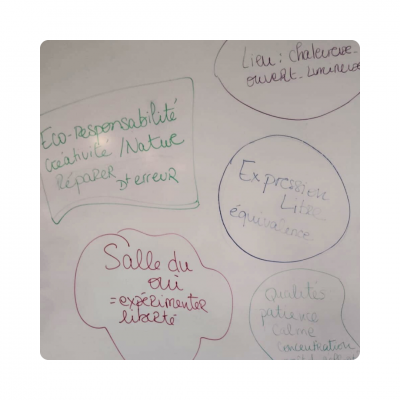 Lieu : chaleureux.
ouvert. lumineux
Eco-responsabilité
Créativité / Nature
Réparer Dt erreur
Expression
Libre
équivalence
Salle du
oui
= expérimenter
liberté
Qualités
patience
calme
concentration